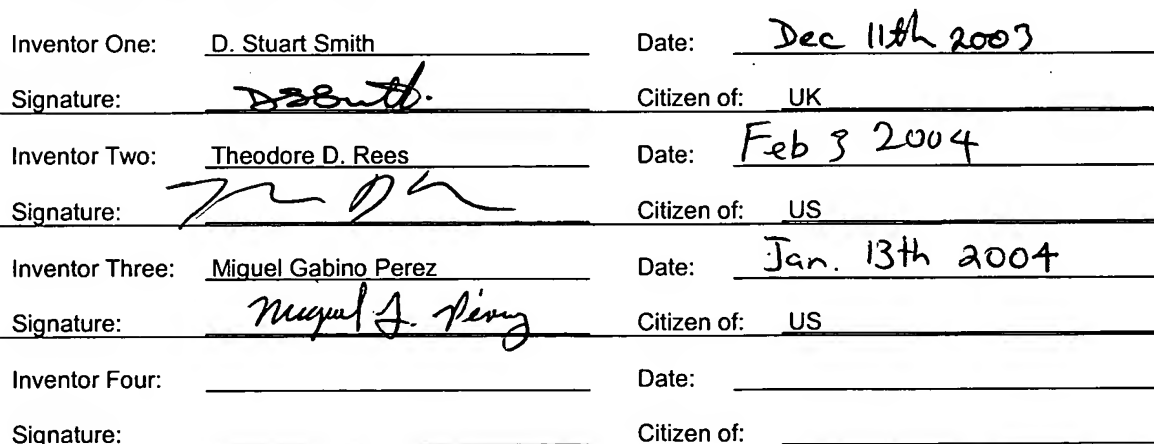 Inventor One: D. Stuart Smith Date: Dec 11th 2003
Signature: DSSmith. Citizen of: UK
Inventor Two: Theodore D. Rees Date: Feb 3 2004
Signature: Citizen of: US
Inventor Three: Miguel Gabino Perez Date: Jan. 13th 2004
Signature: Miguel G. Pérez Citizen of: US
Inventor Four: Date:
Signature: Citizen of: